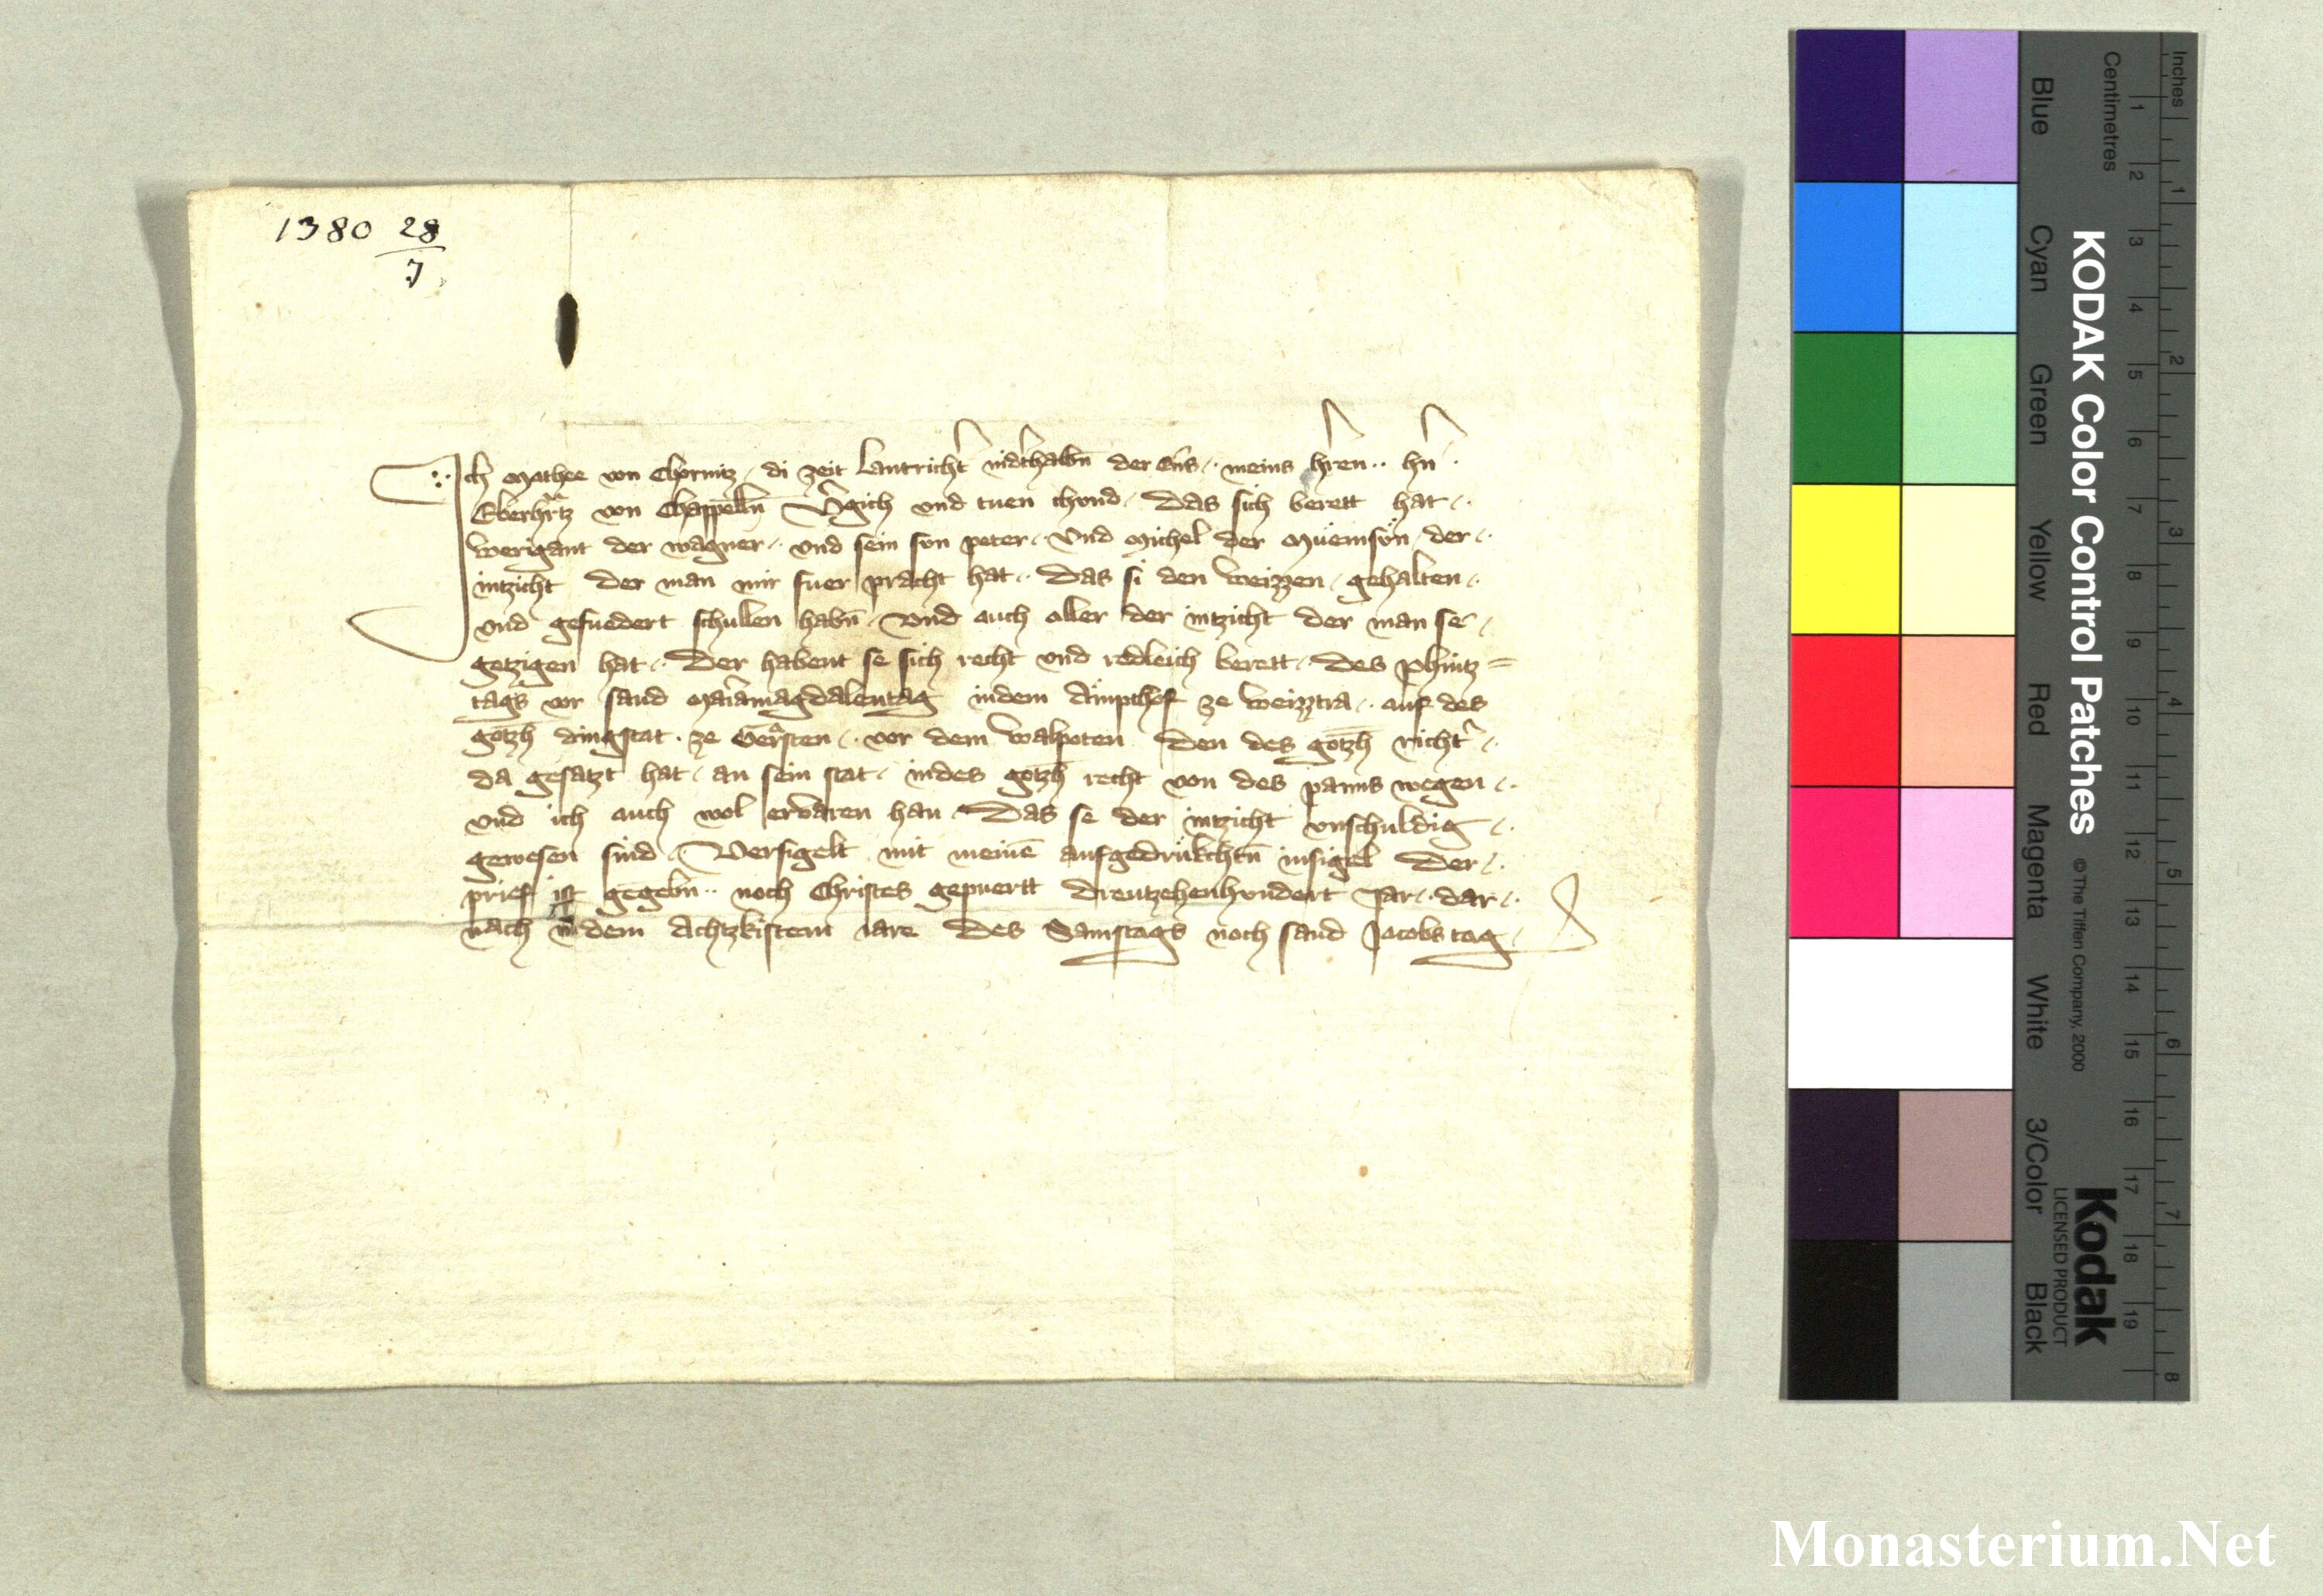 1380 28
7
Ich Mathee von Chornitz di zeit Lantricht nidthalbn der Ens meins hren hn
Eberhrtz von Chappelln Vgich vnd tuen chvnd Das sich berett hat
werigant der wagner vnd sein svn peter Vnd Michel der
intzicht der man mir fuer pracht hat Das si den weizzen gehalten
vnd gefuedert schullen habn Vnd auch aller der intzicht der man se
getzigen hat Der habent se sich recht vnd redleich berett des phintz=
tags vor sand Mariamagdalentag indem Ampthof ze weiztra auf des
gotzh dingstat ze Gersten vor dem walpoten Den des gotzh richt
da gesatzt hat an sein stat indes gotzh recht von des panns wegen
vnd ich auch wol ervaren han Das se der intzicht vnschuldig
gewesen sind Versigelt mit meine aufgedrukchtn insigel Der
prief ist gegebn noch Christes gepuertt Dreutzehenhundert Jar dar
nach in dem Achtzkistem iare Des Samstags noch sand Jacobs tag
KODAK Color Control Patches © The Tiffen Company, 2000
Kodak
LICENSED PRODUCT
Inches 1 2 3 4 5 6 7 8
Centimetres 1 2 3 4 5 6 7 8 9 10 11 12 13 14 15 16 17 18 19
Blue Cyan Green Yellow Red Magenta White 3/Color Black
Monasterium.Net